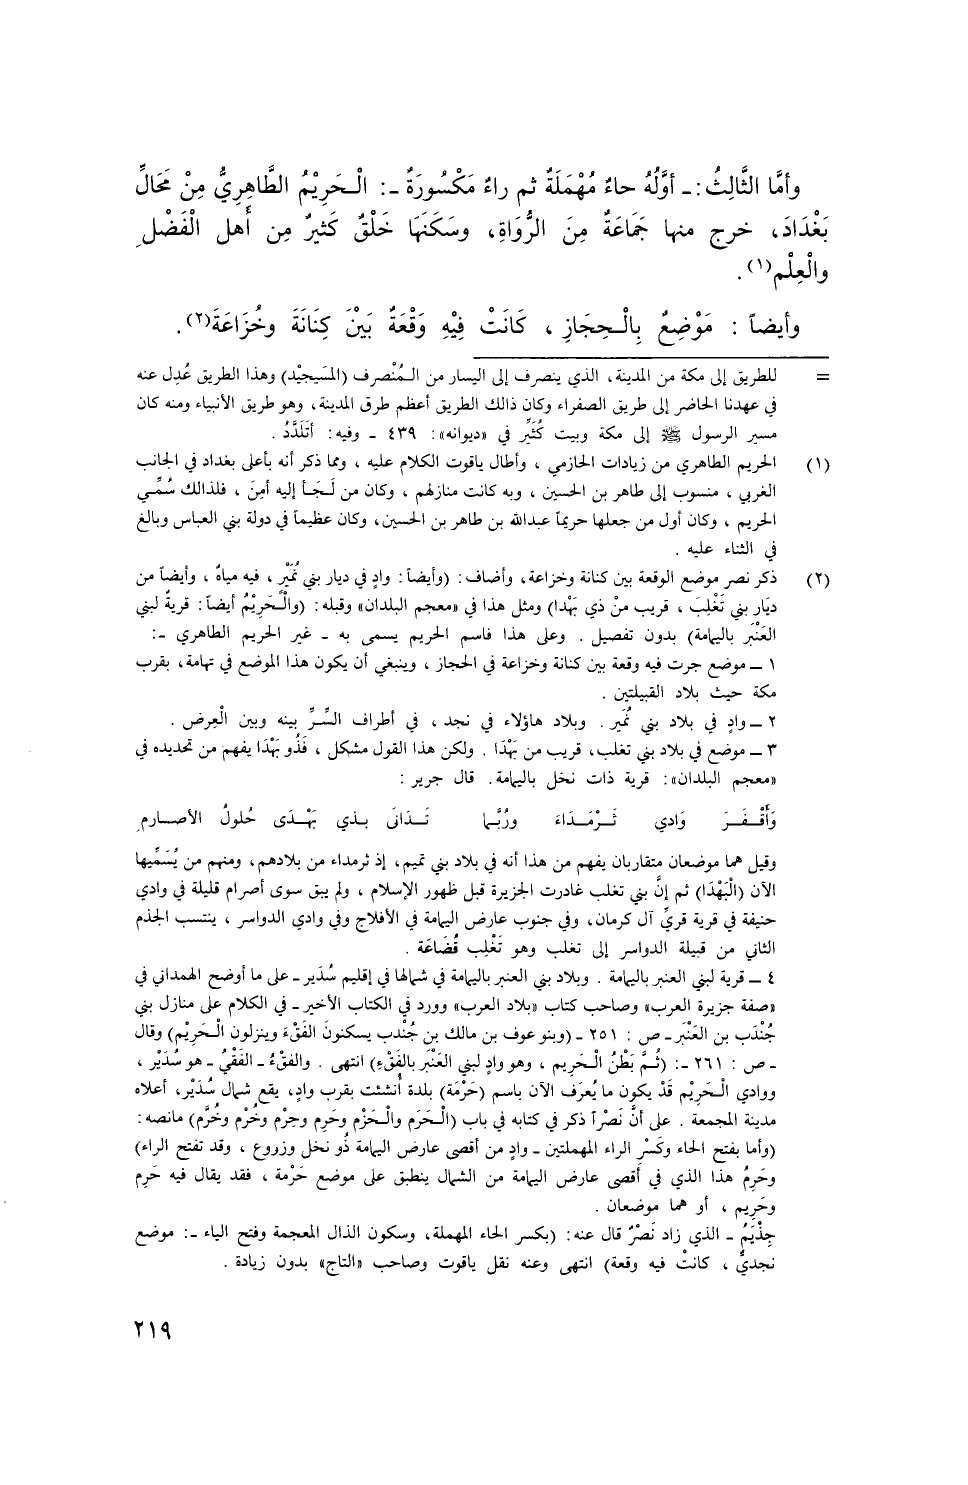 وأمَّا الثَّالِثُ :ـ أوَّلُهُ حاءٌ مُهْمَلَةٌ ثم راءٌ مَكْسُورَةٌ ـ: الْـحَرِيْمُ الطَّاهِرِيُّ مِنْ مَحَالِّ
بَغْدَادَ، خرج منها جَمَاعَةٌ مِنَ الرُّوَاةِ، وسَكَنَهَا خَلْقٌ كَثيرٌ مِن أهل الْفَضْلِ
والْعِلْمِ(١) .
وأيضاً : مَوْضِعٌ بِالْـحِجَازِ ، كَانَتْ فِيْهِ وَقْعَةٌ بَيْنَ كِنَانَةَ وخُزَاعَةَ(٢).
= للطريق إلى مكة من المدينة، الذي ينصرف إلى اليسار من الـمُنْصرف (المسَيجيْد) وهذا الطريق عُدِل عنه
في عهدنا الحاضر إلى طريق الصفراء وكان ذالك الطريق أعظم طرق المدينة، وهو طريق الأنبياء ومنه كان
مسير الرسول ﷺ إلى مكة وبيت كُثَيِّر في «ديوانه»: ٤٣٩ ـ وفيه: أتَلَدَّدُ .
(١) الحريم الطاهري من زيادات الحازمي ، وأطال ياقوت الكلام عليه ، ومما ذكر أنه بأعلى بغداد في الجانب
الغربي ، منسوب إلى طاهر بن الحسين ، وبه كانت منازلهم ، وكان من لَـجَـأ إليه أمِنَ ، فلذالك سُمِّـي
الحريم ، وكان أول من جعلها حريماً عبدالله بن طاهر بن الحسين، وكان عظيماً في دولة بني العباس وبالغ
في الثناء عليه .
(٢) ذكر نصر موضع الوقعة بين كنانة وخزاعة، وأضاف: (وأيضاً: وادٍ في ديار بني نُمَيْرٍ ، فيه مياهٌ ، وأيضاً من
ديَار بني تَغْلِبَ ، قريب منْ ذي بَهْدا) ومثل هذا في «معجم البلدان» وقبله: (والْحَرِيْمُ أيضاً: قريةٌ لبني
العَنْبَر باليمامة) بدون تفصيل . وعلى هذا فاسم الحريم يسمى به ـ غير الحريم الطاهري ـ:
١ ـ موضع جرت فيه وقعة بين كنانة وخزاعة في الحجاز ، وينبغي أن يكون هذا الموضع في تهامة، بقرب
مكة حيث بلاد القبيلتين .
٢ ـ وادٍ في بلاد بني نُمَير . وبلاد هاؤلاء في نجد ، في أطراف السِّرِّ بينه وبين الْعِرض .
٣ ـ موضع في بلاد بني تغلب، قريب من بَهْدَا . ولكن هذا القول مشكل ، فَذُو بَهْدَا يفهم من تحديده في
«معجم البلدان»: قرية ذات نخل باليمامة. قال جرير :
وَأَقْـفَـرَ وَادي ثَـرْمَـدَاءَ ورُبَّـما تَـدَانَى بـذي بَهْـدَى حُلولُ الأصـارمِ
وقيل هما موضعان متقاربان يفهم من هذا أنه في بلاد بني تميم، إذ ثرمداء من بلادهم، ومنهم من يُسَمِّيها
الآن (الْبَهْدَا) ثم إنَّ بني تغلب غادرت الجزيرة قبل ظهور الإسلام ، ولم يبق سوى أصرام قليلة في وادي
حنيفة في قرية قريِّ آل كرمان، وفي جنوب عارض اليمامة في الأفلاج وفي وادي الدواسر ، ينتسب الجذم
الثاني من قبيلة الدواسر إلى تغلب وهو تَغْلِب قُضَاعَة .
٤ ـ قرية لبني العنبر باليمامة . وبلاد بني العنبر باليمامة في شمالها في إقليم سُدَير ـ على ما أوضح الهمداني في
«صفة جزيرة العرب» وصاحب كتاب «بلاد العرب» وورد في الكتاب الأخير ـ في الكلام على منازل بني
جُنْدَب بن العَنْبَر ـ ص : ٢٥١ ـ (وبنو عوف بن مالك بن جُنْدب يسكنونَ الفَقْءَ وينزلون الْـحَرِيْم) وقال
ـ ص : ٢٦١ ـ: (ثُـمَّ بَطْنُ الْـحَرِيم ، وهو وادٍ لبني العَنْبَر بالفَقْءِ) انتهى . والفقْءُ ـ الفَقْيُ ـ هو سُدَيْر ،
ووادي الْـحَرِيْم قَدْ يكون ما يُعرَف الآن باسم (حَرْمَة) بلدة أُنشئت بقرب وادٍ، يقع شمال سُدَيْر، أعلاه
مدينة المجمعة . على أنَّ نَصْراً ذكر في كتابه في باب (الْـحَرَم والْـحَزْم وحَرِم وجرْم وخُرْم وخُرَّم) مانصه:
(وأما بفتح الحاء وكَسْرِ الراء المهملتين ـ وادٍ من أقصى عارض اليمامة ذُو نخل وزروع ، وقد تفتح الراء)
وحَرِمُ هذا الذي في أقصى عارض اليمامة من الشمال ينطبق على موضع حَرْمة ، فقد يقال فيه حَرِم
وحَرِيم ، أو هما موضعان .
حِذْيَمُ ـ الذي زاد نَصْرٌ قال عنه: (بكسر الحاء المهملة، وسكون الذال المعجمة وفتح الياء ـ: موضع
نجديٌّ ، كانتْ فيه وقعة) انتهى وعنه نقل ياقوت وصاحب «التاج» بدون زيادة .
٢١٩